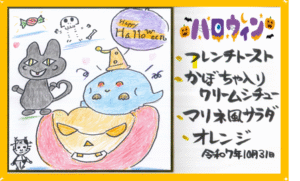 Happy
Halloween
ハロウィン
フレンチトースト
かぼちゃ入り
クリームシチュー
マリネ風サラダ
オレンジ
令和7年10月31日